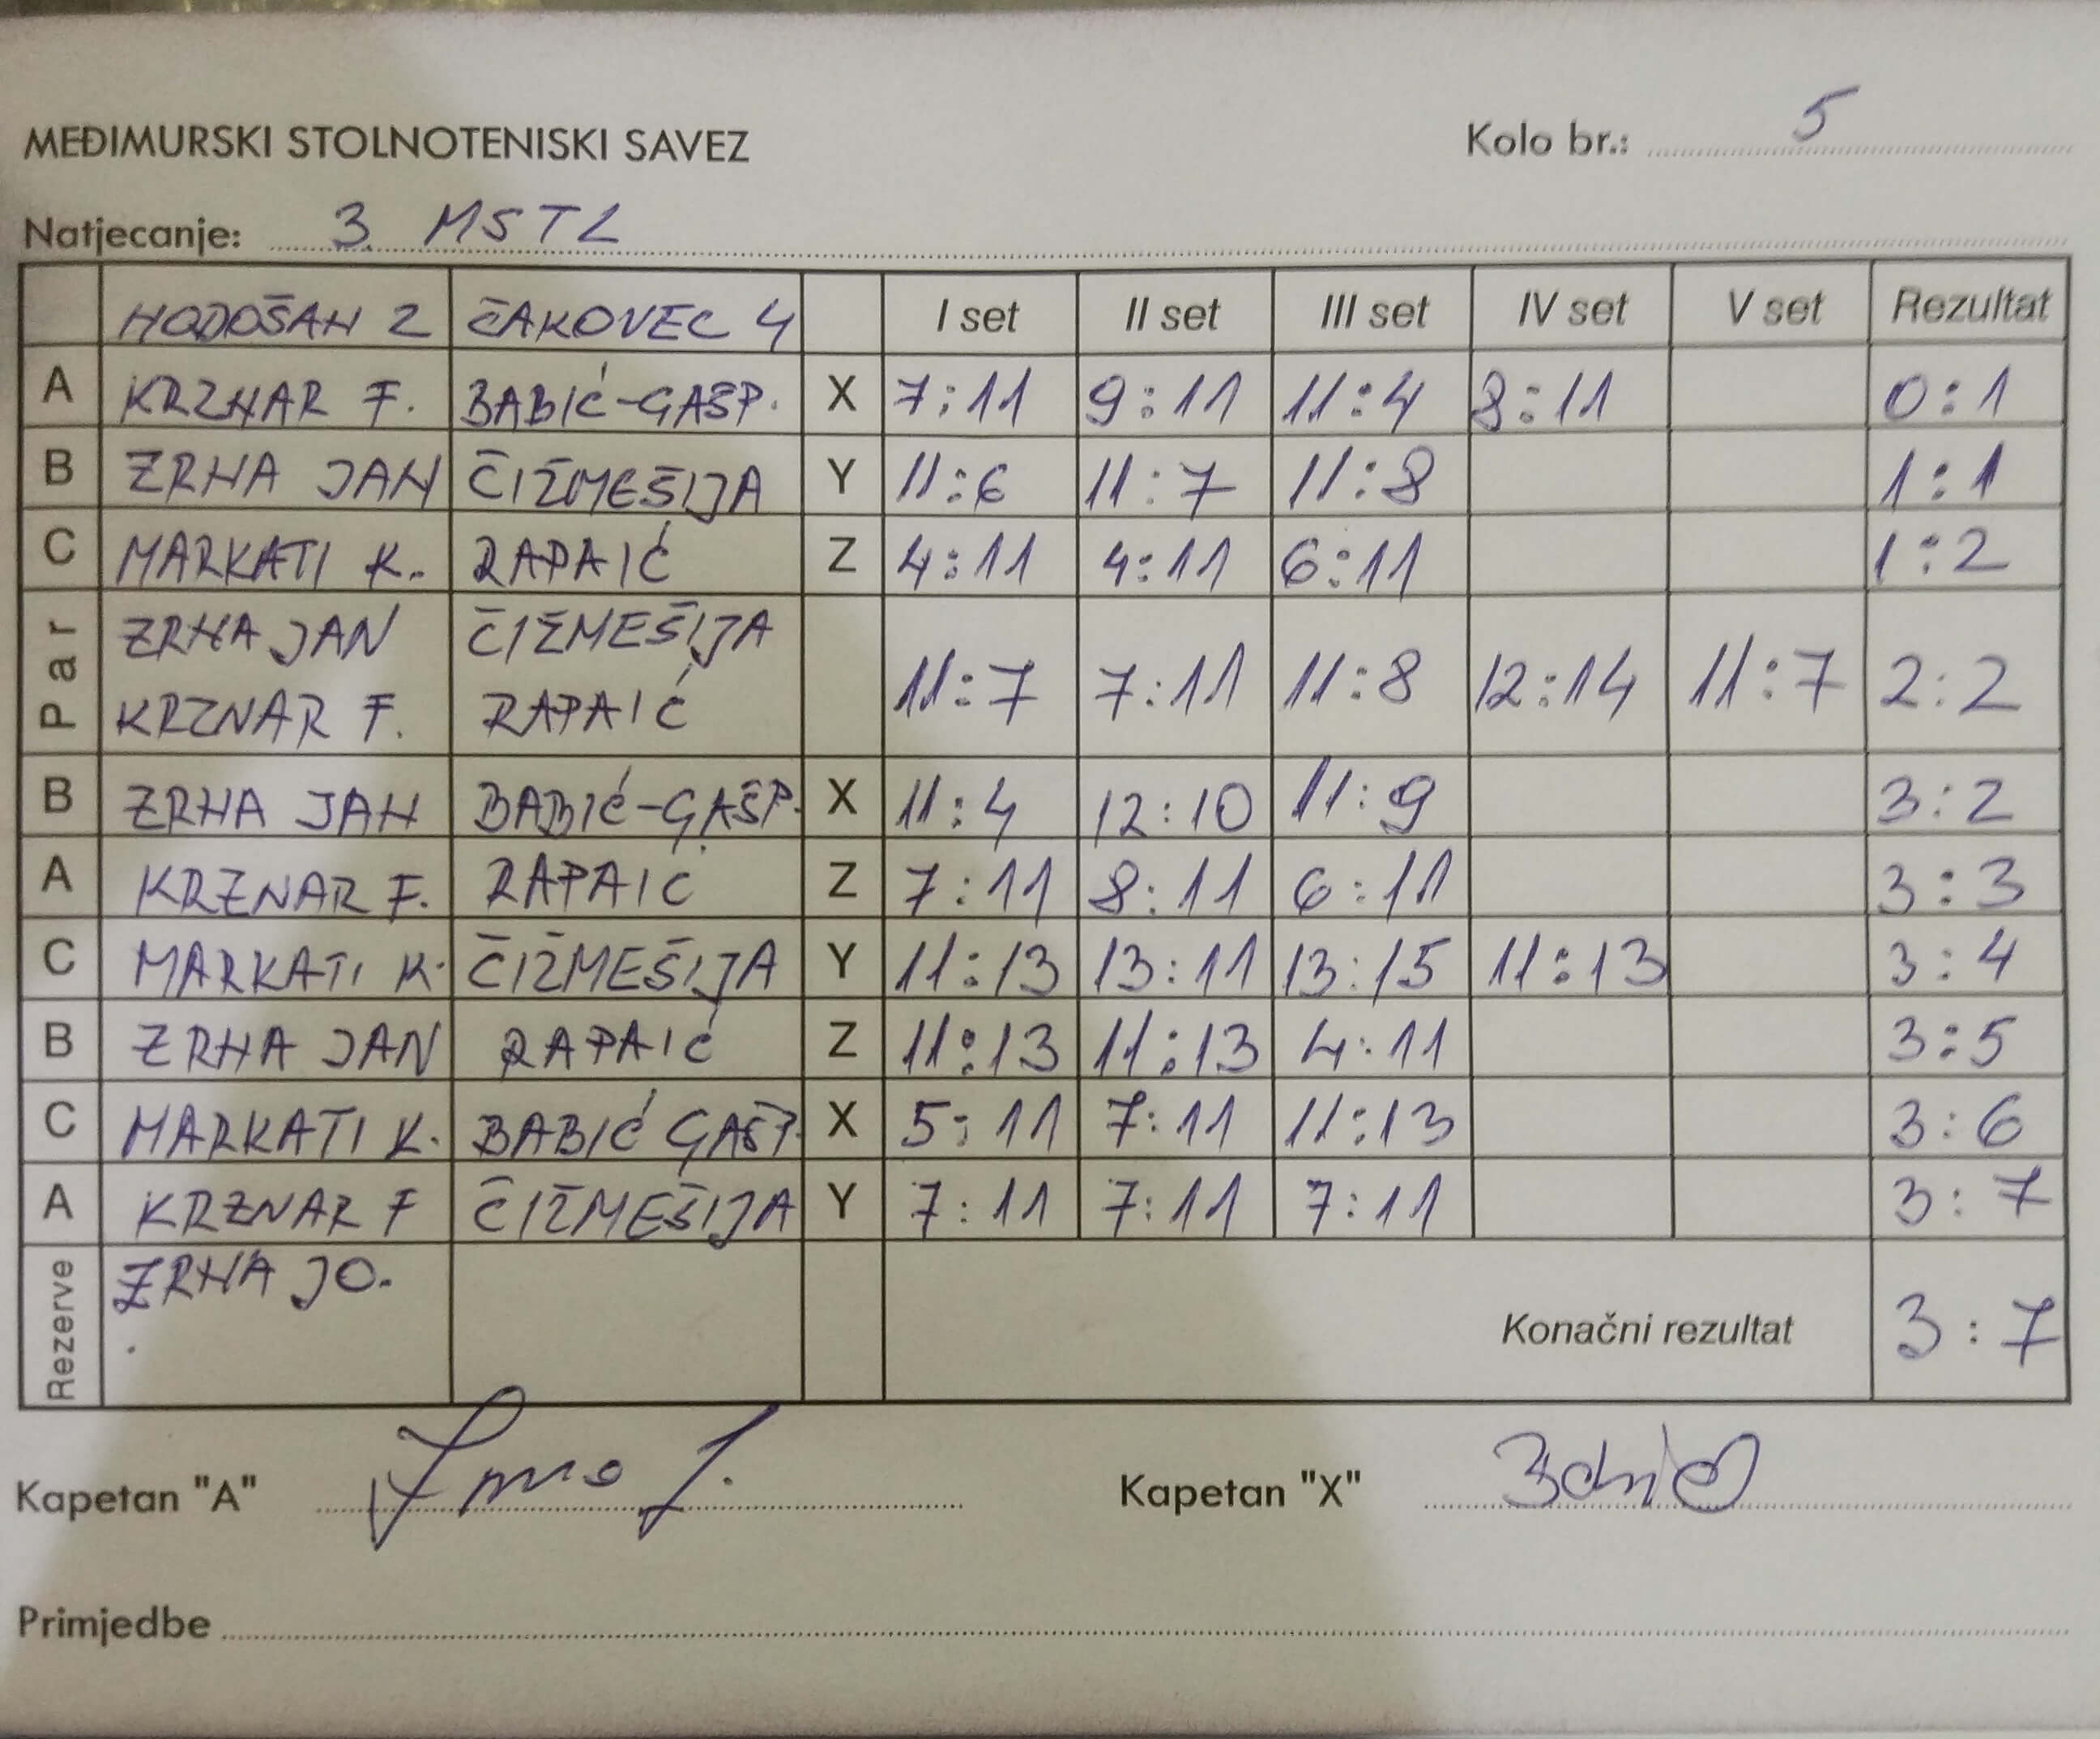 MEĐIMURSKI STOLNOTENISKI SAVEZ Kolo br.: 5
Natjecanje: 3. MSTL
HODOŠAN 2 ČAKOVEC 4 I set II set III set IV set V set Rezultat
A KRZNAR F. BABIĆ-GAŠP. X 7:11 9:11 11:4 8:11 0:1
B ZRNA JAN ČIŽMEŠIJA Y 11:6 11:7 11:8 1:1
C MARKATI K. RAPAIĆ Z 4:11 4:11 6:11 1:2
Par ZRNA JAN ČIŽMEŠIJA
KRZNAR F. RAPAIĆ 11:7 7:11 11:8 12:14 11:7 2:2
B ZRNA JAN BABIĆ-GAŠP. X 11:4 12:10 11:9 3:2
A KRZNAR F. RAPAIĆ Z 7:11 8:11 6:11 3:3
C MARKATI K. ČIŽMEŠIJA Y 11:13 13:11 13:15 11:13 3:4
B ZRNA JAN RAPAIĆ Z 11:13 11:13 4:11 3:5
C MARKATI K. BABIĆ GAŠP. X 5:11 7:11 11:13 3:6
A KRZNAR F ČIŽMEŠIJA Y 7:11 7:11 7:11 3:7
Rezerve ZRNA JO.
Konačni rezultat 3:7
Kapetan "A" Kapetan "X"
Primjedbe